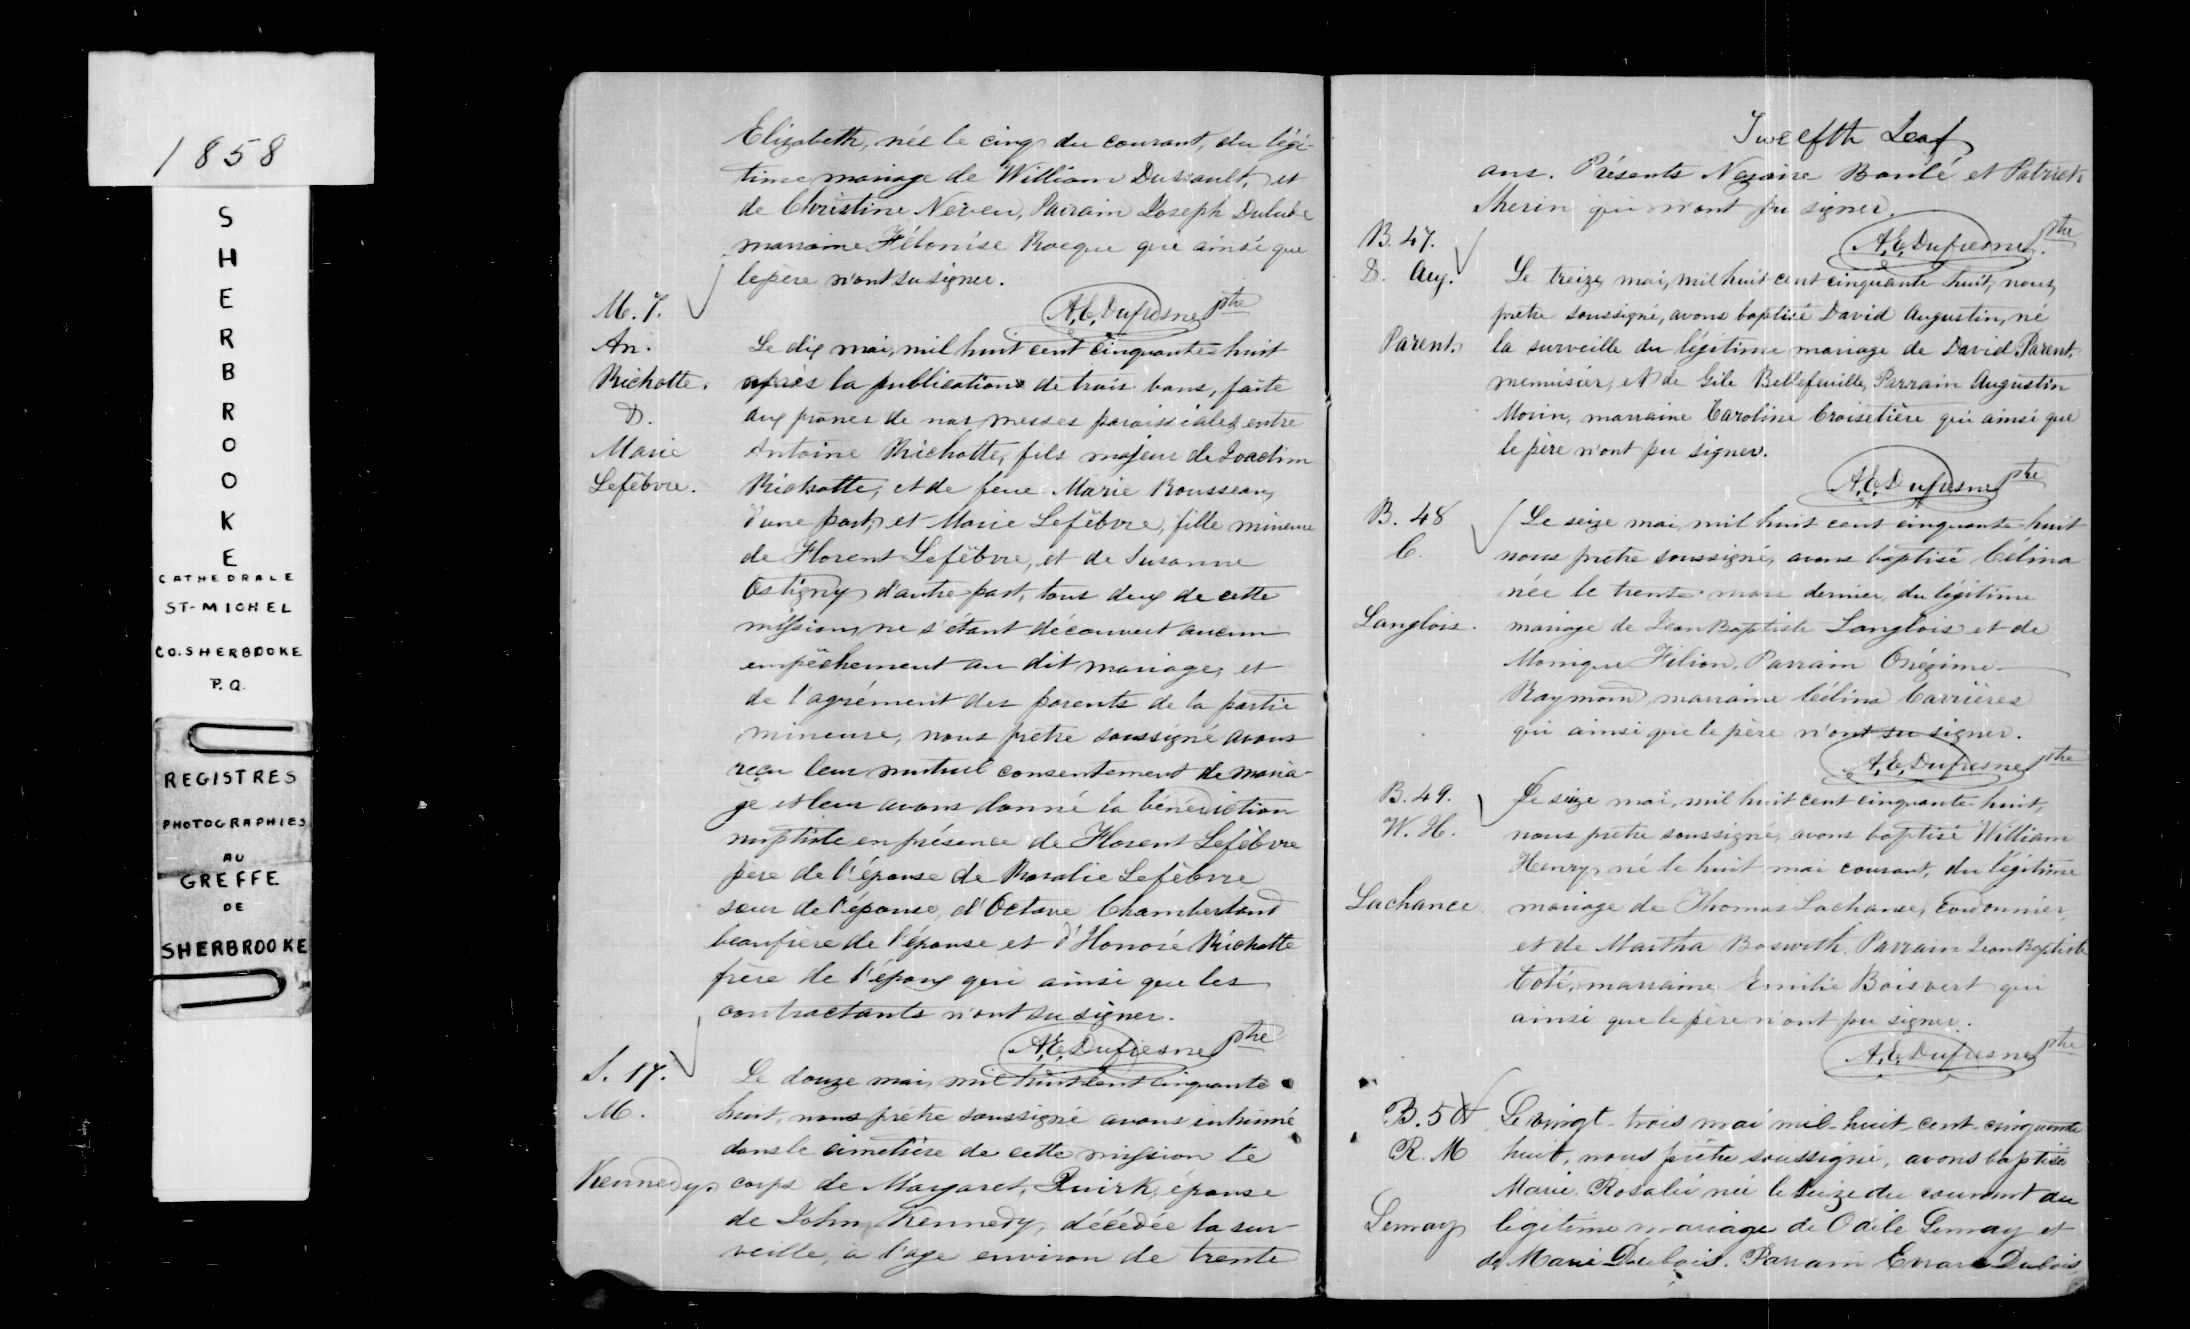 1858
S
H
E
R
B
R
O
O
K
E
CATHEDRALE
ST-MICHEL
CO. SHERBROOKE
P.Q.
REGISTRES
PHOTOGRAPHIES
AU
GREFFE
DE
SHERBROOKE
Elizabeth, née le cinq du courant, du légi-
time mariage de William Dussault, et
de Christine Neven, Parrain Joseph Dulude
marraine Hélonise Rocque qui ainsi que
le père n'ont su signer.
A.E. Dufresne ptre
M. 7.
An.
Richotte.
D.
Marie
Lefèbvre.
Le dix mai, mil huit cent cinquante-huit
après la publication de trois bans, faite
aux prônes de nos messes paroissiales, entre
Antoine Richotte, fils majeur de Joachim
Richotte, et de feue Marie Rousseau,
d'une part, et Marie Lefèbvre, fille mineure
de Florent Lefèbvre, et de Susanne
Ostigny d'autre part, tous deux de cette
mission, ne s'étant découvert aucun
empêchement au dit mariage, et
de l'agrément des parents de la partie
mineure, nous prêtre soussigné avons
reçu leur mutuel consentement de maria-
ge et leur avons donné la bénédiction
nuptiale en présence de Florent Lefèbvre
père de l'épouse de Rosalie Lefèbvre
sœur de l'épouse, d'Octave Chamberland
beaufrère de l'épouse et d'Honoré Richotte
frère de l'époux qui ainsi que les
contractants n'ont su signer.
A.E. Dufresne ptre
S. 17.
M.
Kennedy.
Le douze mai, mil huit cent cinquante
huit, nous prêtre soussigné avons inhumé
dans le cimetière de cette mission le
corps de Margaret Quirk, épouse
de John Kennedy, décédée la sur-
veille, à l'age environ de trente
Twelfth Leaf
ans. Présents Nazaire Boulé et Patrick
Sherin qui n'ont pu signer.
A.E. Dufresne ptre.
B. 47.
D. Aug.
Parent.
Le treize mai, mil huit cent cinquante huit, nous,
prêtre soussigné, avons baptisé David Augustin, né
la surveille du légitime mariage de David Parent,
menuisier, et de Gile Bellefeuille, Parrain Augustin
Morin, marraine Caroline Croisetière qui ainsi que
le père n'ont pu signer.
A.E. Dufresne ptre
B. 48
C.
Langlois.
Le seize mai, mil huit cent cinquante-huit
nous prêtre soussigné, avons baptisé Célina
née le trente mars dernier, du légitime
mariage de Jean Baptiste Langlois et de
Monique Filion, Parrain Onézime
Raymond, marraine Célina Carrières
qui ainsi que le père n'ont su signer.
A.E. Dufresne ptre
B. 49.
W. H.
Lachance.
Le seize mai, mil huit cent cinquante-huit,
nous prêtre soussigné, avons baptisé William
Henry, né le huit mai courant, du légitime
mariage de Thomas Lachance, Cordonnier,
et de Martha Bosworth. Parrain Jean Baptiste
Coté, marraine Emilie Boisvert qui
ainsi que le père n'ont pu signer.
A.E. Dufresne ptre
B. 50
R. M
Lemay
Le vingt-trois mai mil-huit-cent-cinquante
huit, nous prêtre soussigné, avons baptisé
Marie Rosalie née le seize du courant du
légitime mariage de Odile Lemay et
de Marie Dubois. Parrain Evrare Dubois,